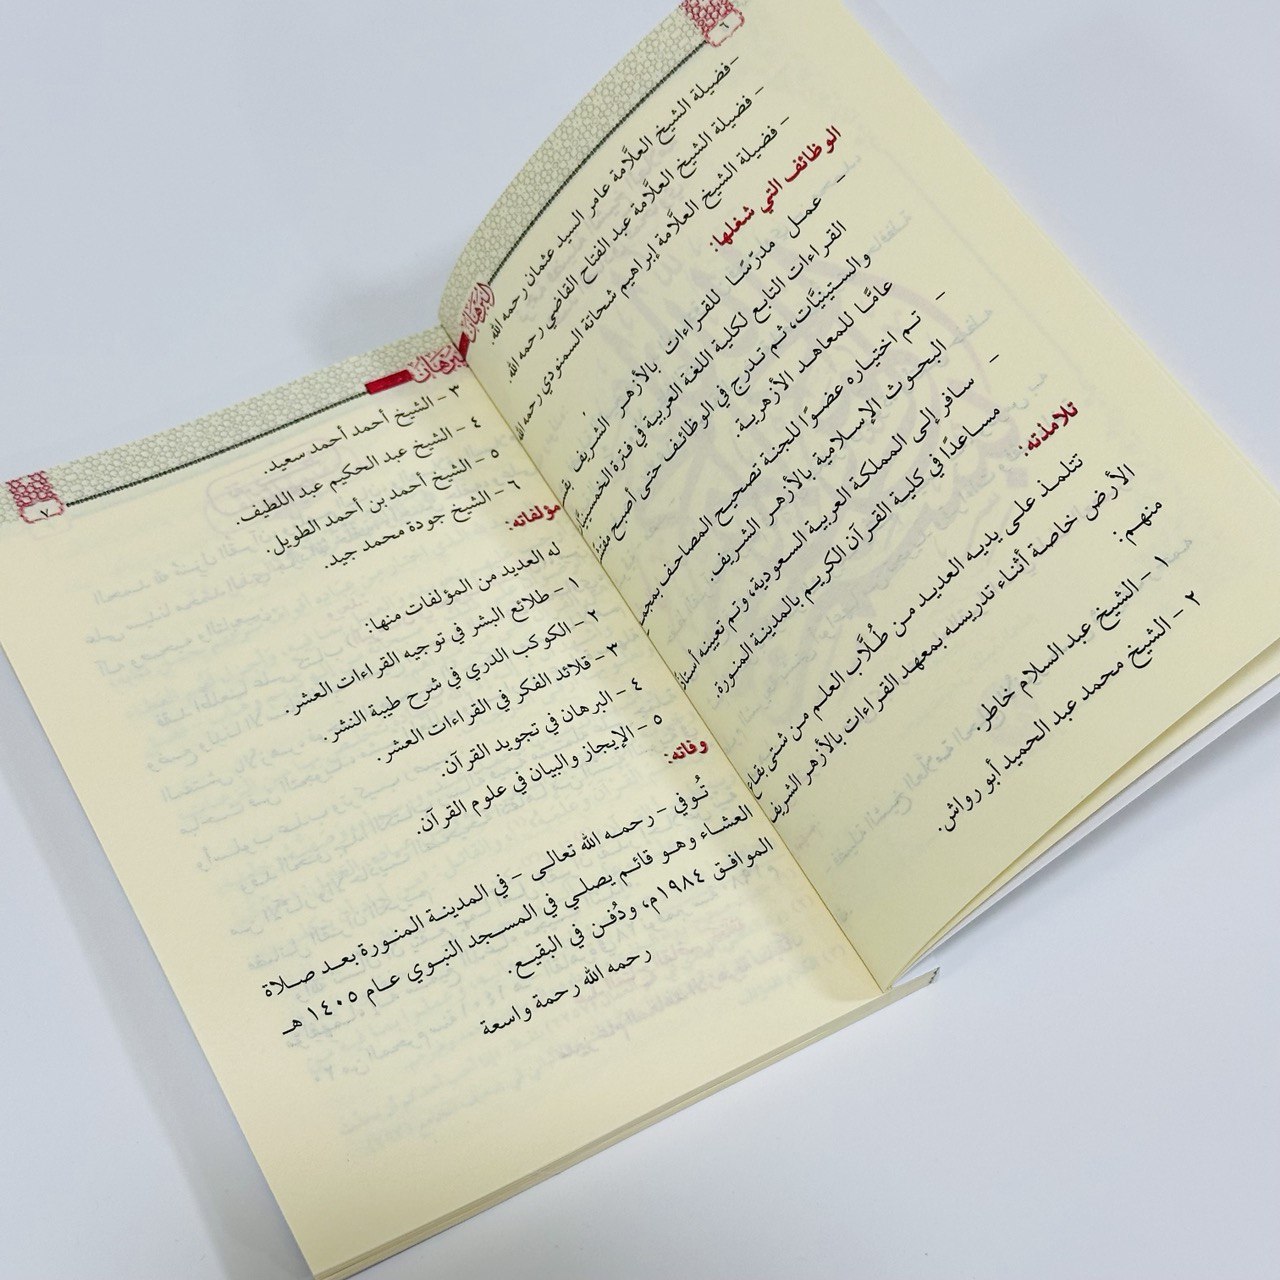 ٦
البرهان
- فضيلة الشيخ العلَّامة عامر السيد عثمان رحمه الله.
- فضيلة الشيخ العلَّامة عبد الفتاح القاضي رحمه الله.
- فضيلة الشيخ العلَّامة إبراهيم شحاتة السمنودي رحمه الله
الوظائف التي شغلها:
- عمل مدرّسًا للقراءات بالأزهر الشريف
القراءات التابع لكلية اللغة العربية في فترة الخمسينيَّات
والستينيَّات، ثم تدرج في الوظائف حتى أصبح
عامًّا للمعاهد الأزهرية.
- تم اختياره عضوًا للجنة تصحيح المصاحف
البحوث الإسلامية بالأزهر الشريف.
- سافر إلى المملكة العربية السعودية، وتم تعيينه
مساعدًا في كلية القرآن الكريم بالمدينة المنورة.
تلامذته:
تتلمذ على يديه العديد من طُلَّاب العلم من شتى بقاع
الأرض خاصة أثناء تدريسه بمعهد القراءات بالأزهر الشريف
منهم:
١ - الشيخ عبد السلام خاطر.
٢ - الشيخ محمد عبد الحميد أبو رواش.
البرهان
٧
٣ - الشيخ أحمد أحمد سعيد.
٤ - الشيخ عبد الحكيم عبد اللطيف.
٥ - الشيخ أحمد بن أحمد الطويل.
٦ - الشيخ جودة محمد جيد.
مؤلفاته:
له العديد من المؤلفات منها:
١ - طلائع البشر في توجيه القراءات العشر.
٢ - الكوكب الدري في شرح طيبة النشر.
٣ - قلائد الفكر في القراءات العشر.
٤ - البرهان في تجويد القرآن.
٥ - الإيجاز والبيان في علوم القرآن.
وفاته:
تُوفي - رحمه الله تعالى - في المدينة المنورة بعد صلاة
العشاء وهو قائم يصلي في المسجد النبوي عام ١٤٠٥ هـ
الموافق ١٩٨٤م، ودُفن في البقيع.
رحمه الله رحمة واسعة